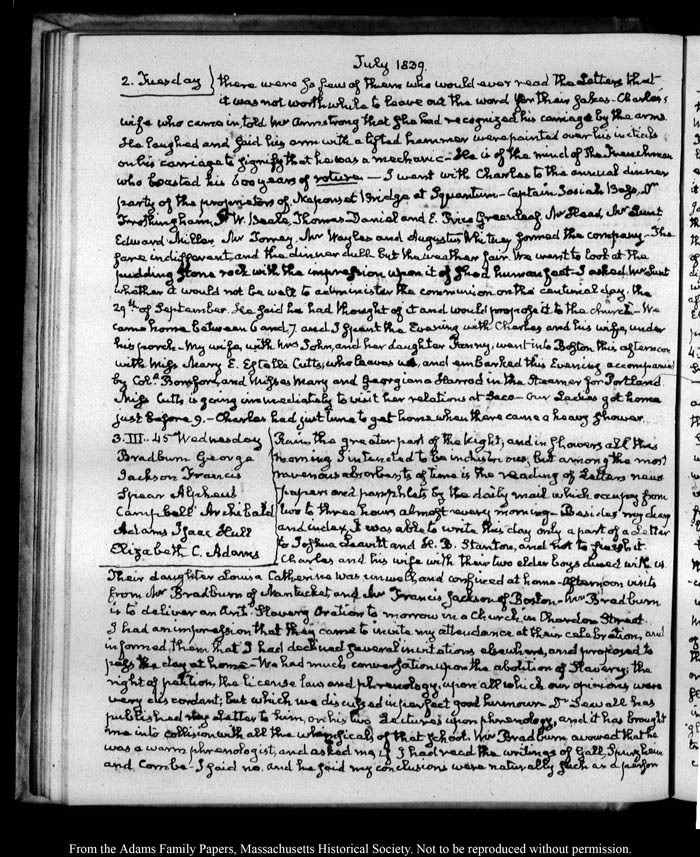 July 1839.
2. Tuesday } there were so few of them who would ever read the Letters that
it was not worth while to leave out the word for their sakes. Charles's
wife who came in told Mr Armstrong that she had recognized his carriage by the arms
He laughed and said his arm with a lifted hammer were painted over his initials
on his carriage to signify that he was a mechanic — He is of the mind of the Frenchman
who boasted his 600 years of roture — I went with Charles to the annual dinner
party of the proprietors of Neponset Bridge at Squantum — Captain Josiah Bass, Dr
Frothingham, W. Beale, Thomas Daniel and E. Price Greenleaf Mr Head, Mr Lunt
Edward Miller, Mr Torrey, Mr Wayles and Augustus Whitney formed the company — The
fare indifferent, and the dinner dull but the weather fair. We went to look at the
pudding stone rock with the impression upon it of shod human feet — I asked Mr Lunt
whether it would not be well to administer the communion on the centurial day. the
29th of September. He said he had thought of it and would propose it to the church — We
came home between 6 and 7. and I spent the Evening with Charles and his wife, under
his porch — My wife, with Mrs John, and her daughter Fanny, went into Boston this afternoon
with Miss Mary E. Estelle Cutts, who leaves us, and embarked this Evening accompanied
by Coll. Bomford, and Misses Mary and Georgiana Harrod in the Steamer for Portland
Miss Cutts is going immediately to visit her relations at Saco — Our Ladies got home
just before 9. — Charles had just time to get home when there came a heavy shower.
3. III. 45 Wednesday
Bradburn George
Jackson Francis
Spear Alpheus
Campbell Archibald
Adams Isaac Hull
Elizabeth C. Adams
Rain the greater part of the Night, and in showers all this
morning I intended to be industrious; but among the most
ravenous absorbents of time is the reading of Letters news
papers and pamphlets by the daily mail which occupy from
two to three hours almost every morning — Besides my diary
and index, I was able to write this day only a part of a Letter
to Joshua Leavitt and H. B. Stanton, and not to finish it
Charles and his wife with their two elder boys dined with us
Their daughter Louisa Catherine was unwell, and confined at home — Afternoon visits
from Mr Bradburn of Nantucket and Mr Francis Jackson of Boston — Mr Bradburn
is to deliver an Anti-Slavery Oration to morrow in a Church in Chardon Street.
I had an impression that they came to invite my attendance at their celebration, and
informed them that I had declined several invitations elsewhere, and proposed to
pass the day at home — We had much conversation upon the abolition of Slavery; the
right of petition, the license law and phrenology; upon all which our opinions were
very discordant; but which we discussed in perfect good humour. Dr Sewall has
published my Letter to him, on his two Lectures upon phrenology, and it has brought
me into collision with all the whimsicals of that school. Mr Bradburn avowed that he
was a warm phrenologist, and asked me if I had read the writings of Gall, Spurzheim
and Combe — I said no. and he said my conclusions were naturally such as a person
From the Adams Family Papers, Massachusetts Historical Society. Not to be reproduced without permission.